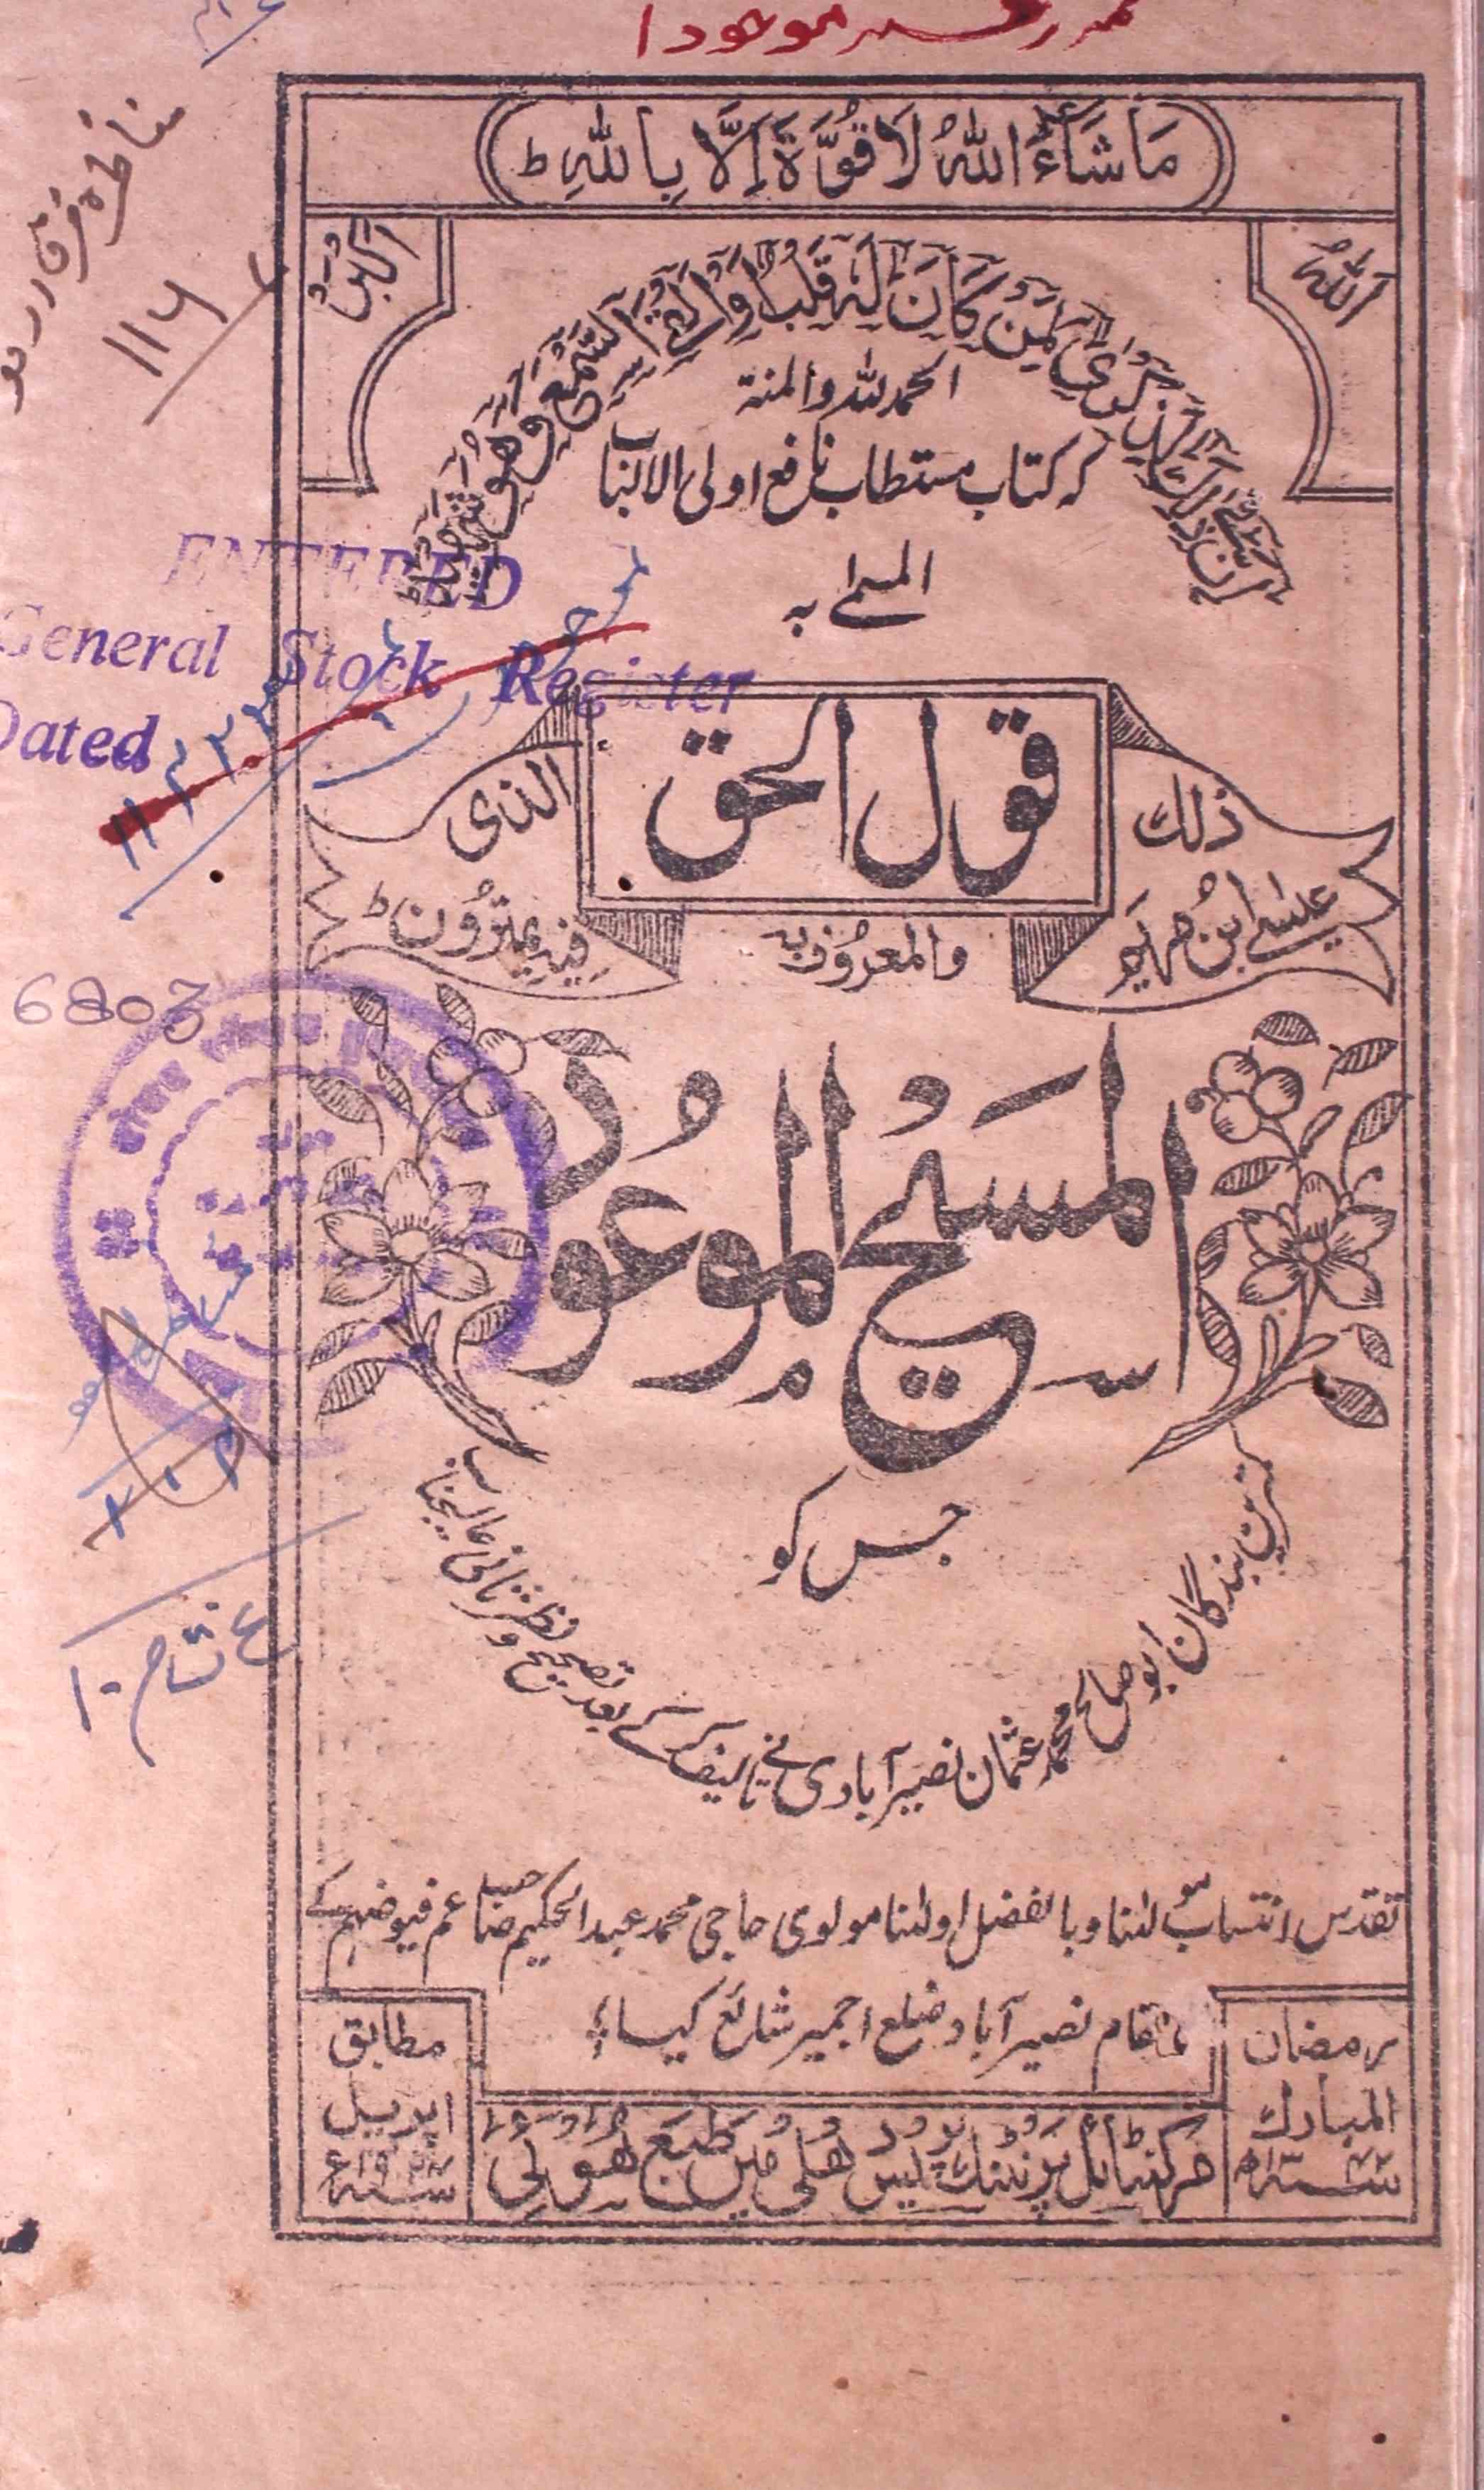 مَا شَآءَ اللّٰهُ لَا قُوَّةَ اِلَّا بِاللّٰهِ ط
اَللّٰهُ
اَکْبَرُ
اِنَّ فِیْ ذٰلِكَ لَذِکْرٰی لِمَنْ کَانَ لَهٗ قَلْبٌ اَوْ اَلْقَی السَّمْعَ وَهُوَ شَهِیْدٌ ط
الحمد للہ والمنۃ
کہ کتاب مستطاب نافع اولی الالباب
المسمےٰ بہ
ذٰلك
عیسٰے ابنُ مریم
قول الحق
الذی
فِیْهِ یَمْتَرُوْنَ ط
والمعرُوف بہ
المسیح الموعود
جس کو
کمترین بندگان ابو صالح محمد عثمان نصیرآبادی نے تالیف کرکے بعد تصحیح و نظر ثانی عالیجناب
تقدس انتساب مولٰنا و بالفضل اولٰنا مولوی حاجی محمد عبد الحکیم صاحب عم فیوضہم کے
بمقام نصیرآباد ضلع اجمیر شائع کیا
رمضان
المبارك
مطابق
اپریل
مرکنٹائل پرنٹنگ پریس دہلی میں طبع ہوئی
ENTERED
General Stock Register
Dated
۱۱۶
6803